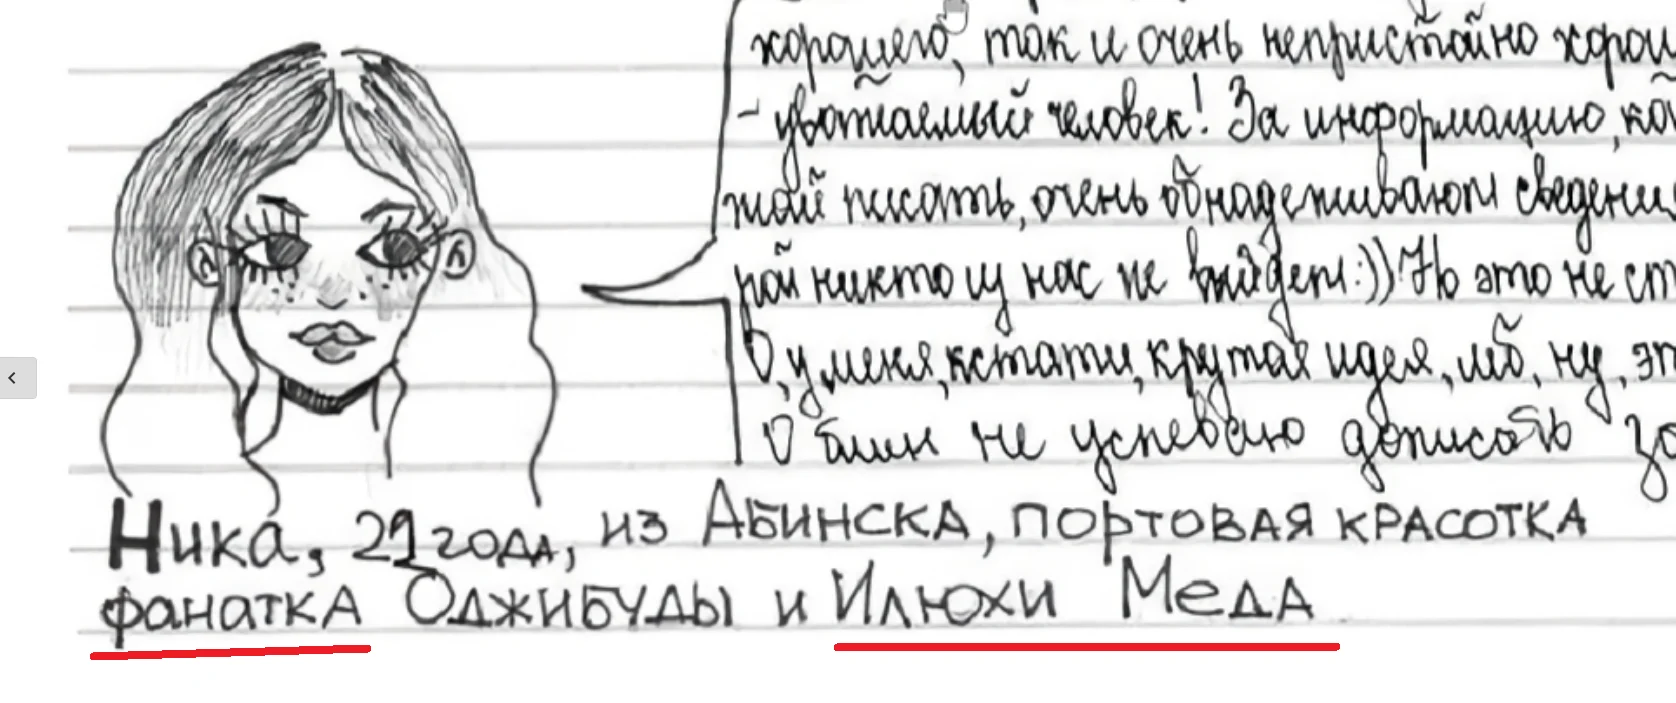 хорошего, так и очень непристойно хорош
- уважаемый человек! За информацию, ко
той писать, очень обнадеживают сведени
рой никто у нас не выйдет :)) Но это не ст
О, у меня, кстати, крутая идея, мб, ну, эт
О блин не успеваю дописать за
Ника, 21 года, из Абинска, портовая красотка
фанатка Оджибуды и Илюхи Меда